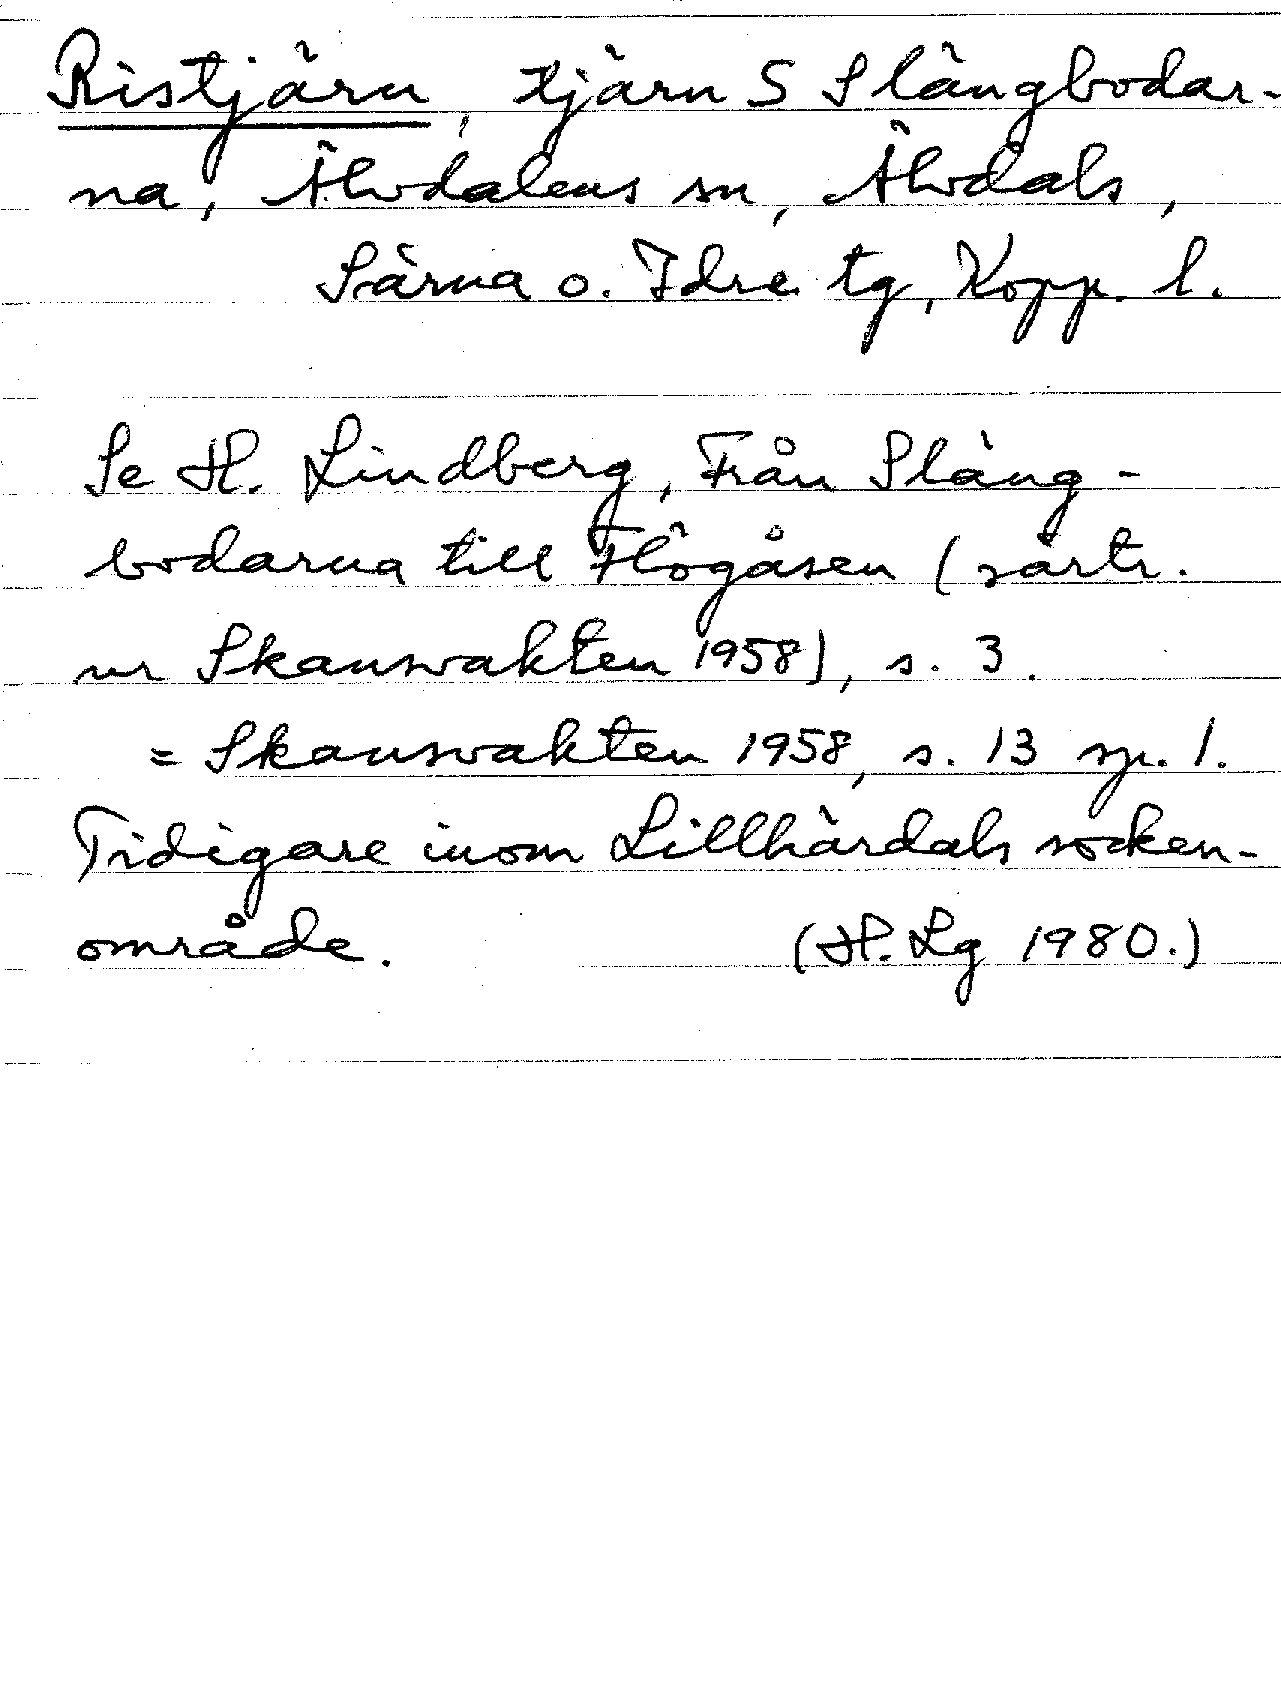 Ristjärn, tjärn S Slängbodar-
na, Älvdalens sn, Älvdals,
Särna o. Idre tg, Kopp. l.
Se H. Lindberg, Från Släng-
bodarna till Högåsen (särtr.
ur Skansvakten 1958), s. 3.
= Skansvakten 1958, s. 13 sp. 1.
Tidigare inom Lillhärdals socken-
område. (H. Lg 1980.)